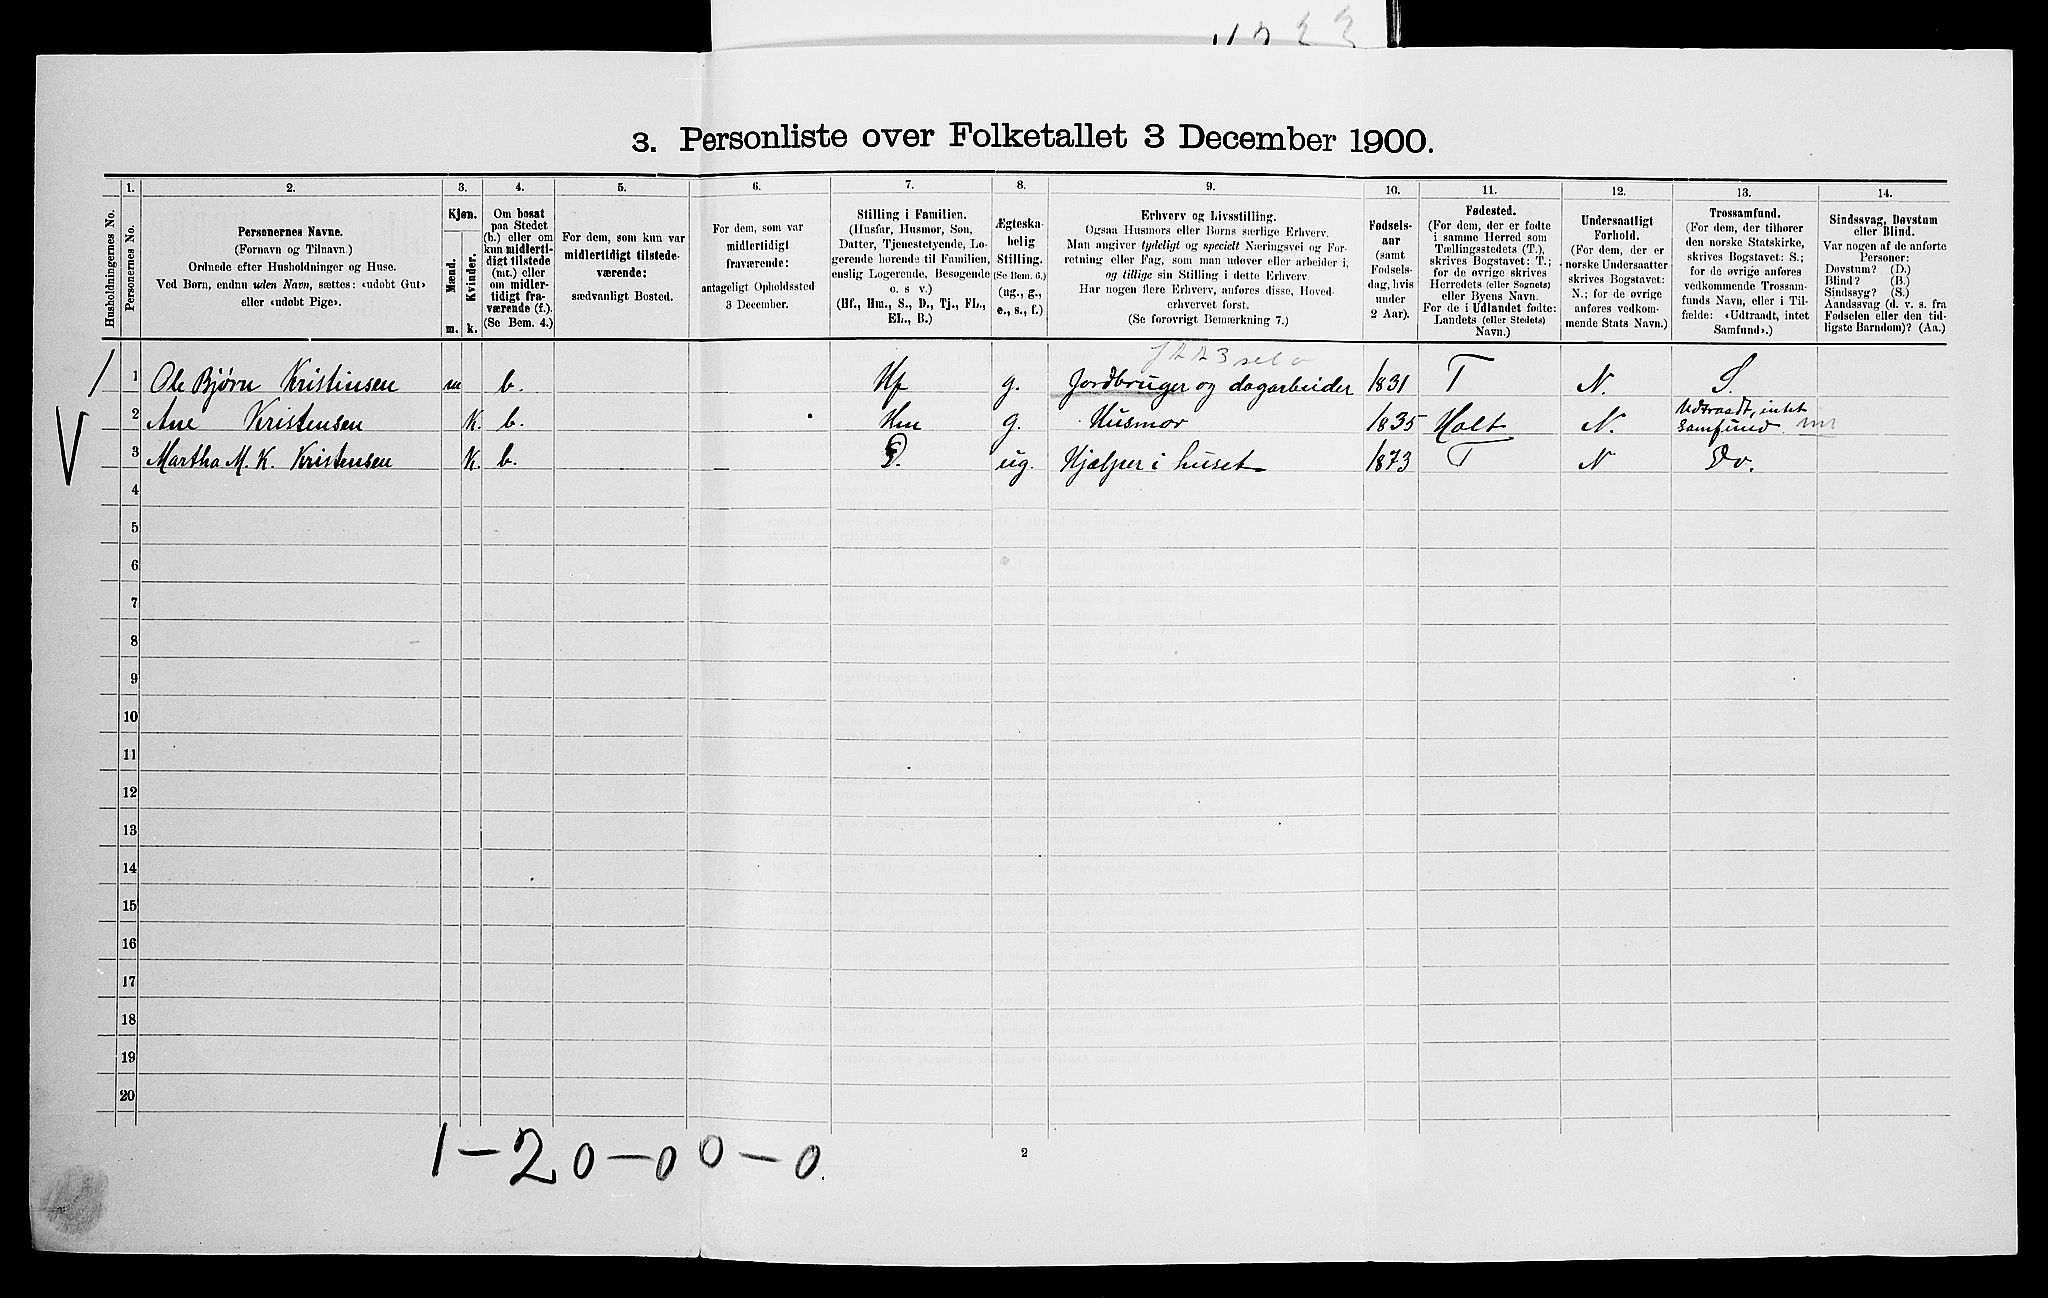 3. Personliste over Folketallet 3 December 1900.
Husholdningernes No.
1.
Personernes No.
2.
Personernes Navne.
(Fornavn og Tilnavn.)
Ordnede efter Husholdninger og Huse.
Ved Børn, endnu uden Navn, sættes: «udøbt Gut»
eller «udøbt Pige».
3.
Kjøn.
Mænd.
Kvinder.
m. k.
4.
Om bosat
paa Stedet
(b.) eller om
kun midlerti-
digt tilstede
(mt.) eller
om midler-
tidigt fra-
værende (f.).
(Se Bem. 4.)
5.
For dem, som kun var
midlertidigt tilstede-
værende:
sædvanligt Bosted.
6.
For dem, som var
midlertidigt
fraværende:
antageligt Opholdssted
3 December.
7.
Stilling i Familien.
(Husfar, Husmor, Søn,
Datter, Tjenestetyende, Lo-
gerende hørende til Familien,
enslig Logerende, Besøgende
o. s v.)
(Hf., Hm., S., D., Tj., FL.,
EL., B.)
8.
Ægteska-
belig
Stilling.
(Se Bem. 6.)
(ug., g.,
e., s., f.)
9.
Erhverv og Livsstilling.
Ogsaa Husmors eller Børns særlige Erhverv.
Man angiver tydeligt og specielt Næringsvei og For-
retning eller Fag, som man udøver eller arbeider i,
og tillige sin Stilling i dette Erhverv.
Har nogen flere Erhverv, anføres disse, Hoved-
erhvervet først.
(Se forøvrigt Bemærkning 7.)
10.
Fødsels-
aar
(samt
Fødsels-
dag, hvis
under
2 Aar).
11.
Fødested.
(For dem, der er fødte
i samme Herred som
Tællingsstedets (T.),
skrives Bogstavet: T.;
for de øvrige skrives
Herredets (eller Sognets)
eller Byens Navn.
For de i Udlandet fødte:
Landets (eller Stedets)
Navn.)
12.
Undersaatligt
Forhold.
(For dem, der er
norske Undersaatter
skrives Bogstavet:
N.; for de øvrige
anføres vedkom-
mende Stats Navn.)
13.
Trossamfund.
(For dem, der tilhører
den norske Statskirke,
skrives Bogstavet: S.;
for de øvrige anføres
vedkommende Trossam-
funds Navn, eller i Til-
fælde: «Udtraadt, intet
Samfund».)
14.
Sindssvag, Døvstum
eller Blind.
Var nogen af de anførte
Personer:
Døvstum? (D.)
Blind? (B.)
Sindssyg? (S.)
Aandssvag (d. v. s. fra
Fødselen eller den tid-
ligste Barndom)? (Aa.)
1 1 Ole Bjørn Kristinsen m b. Hf g. Jordbruger og dagarbeider 1831 T N. S.
2 Ane Kristensen K. b. Hm g. Husmor 1835 Holt N. Udtraadt, intet
samfund
3 Martha M. K. Kristensen K. b. ug. Hjælper i huset 1873 T N Do.
4
5
6
7
8
9
10
11
12
13
14
15
16
17
18
19
20
1-20-00-0.
2